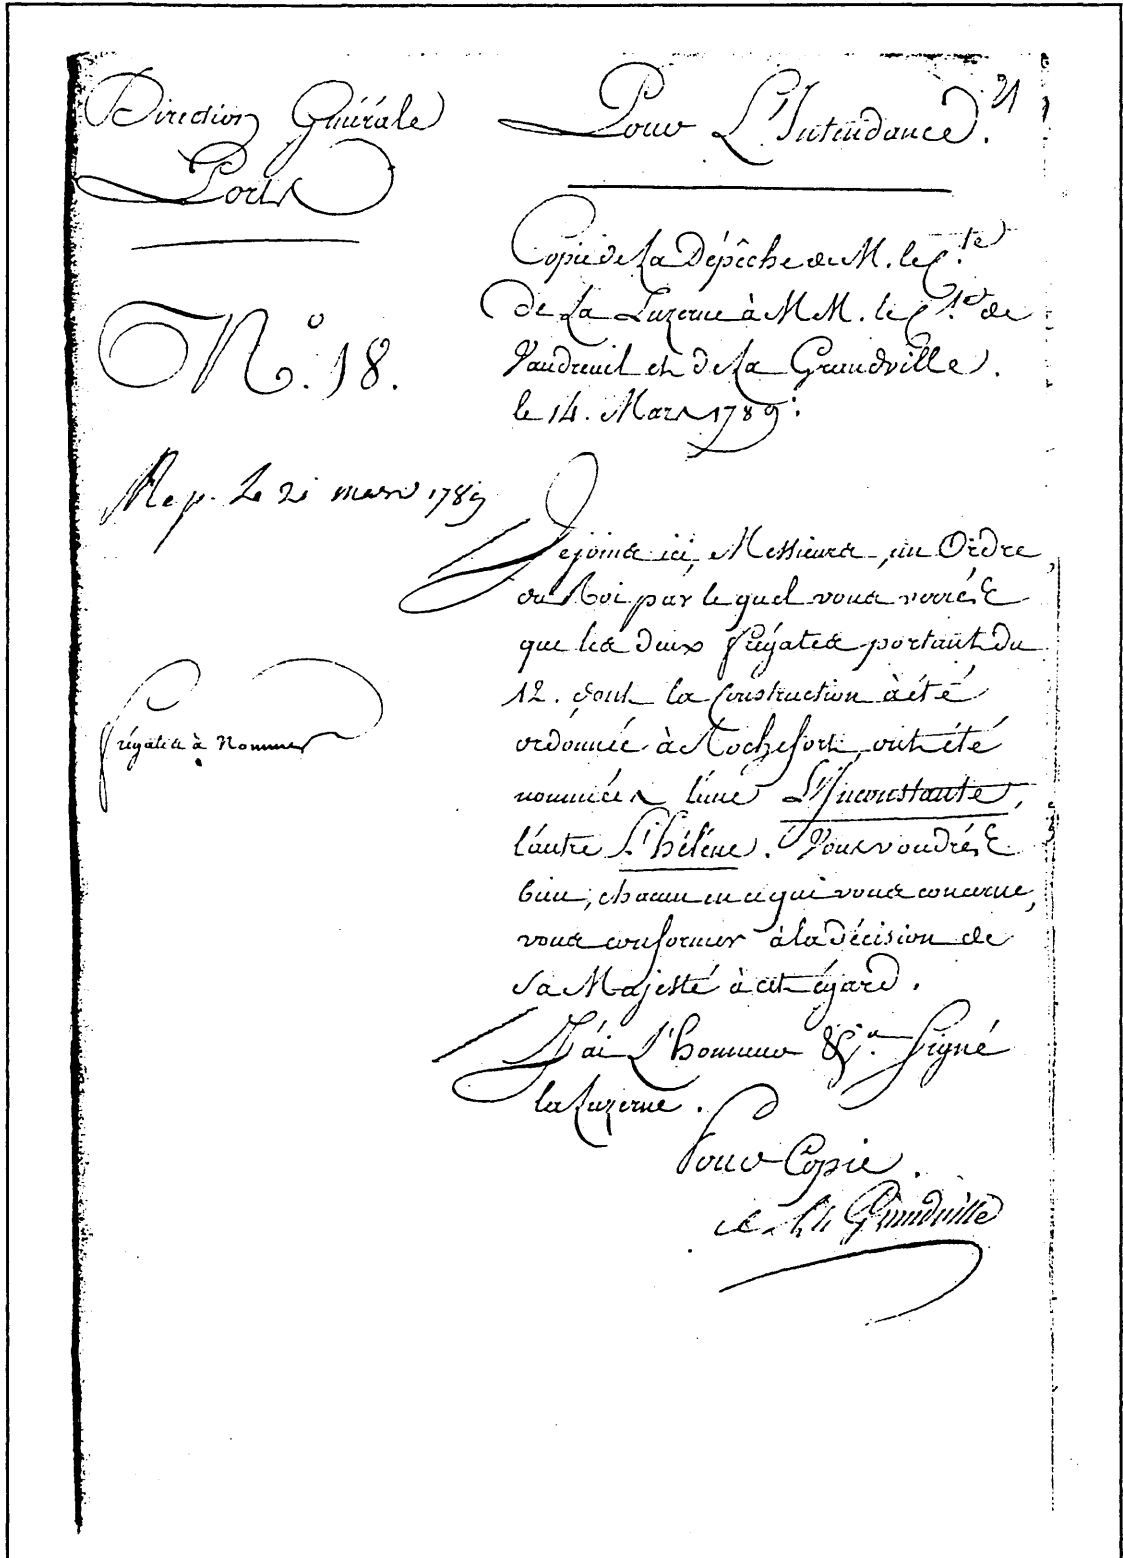 Direction Générale
Ports
N.º 18.
Rep. Le 21 mars 1789
frégates à Nommer
Pour L'Intendance.
21
Copie de La Dépêche de M. le C.te
de La Luzerne à M M. le C.te de
Vaudreuil et de La Grandville.
le 14. Mars 1789.
Je joins ici, Messieurs, un Ordre
du Roi par le quel vous verrés
que les deux frégates portant du
12. dont la Construction à été
ordonnée à Rochefort, ont été
nommées l'une L'Inconstante,
l'autre L'hélène. Vous voudrés
bien, chacun en ce qui vous concerne,
vous conformer à la décision de
Sa Majesté à cet égard.
J'ai L'honneur &c.a Signé
la Luzerne.
Pour Copie.
de la Grandville